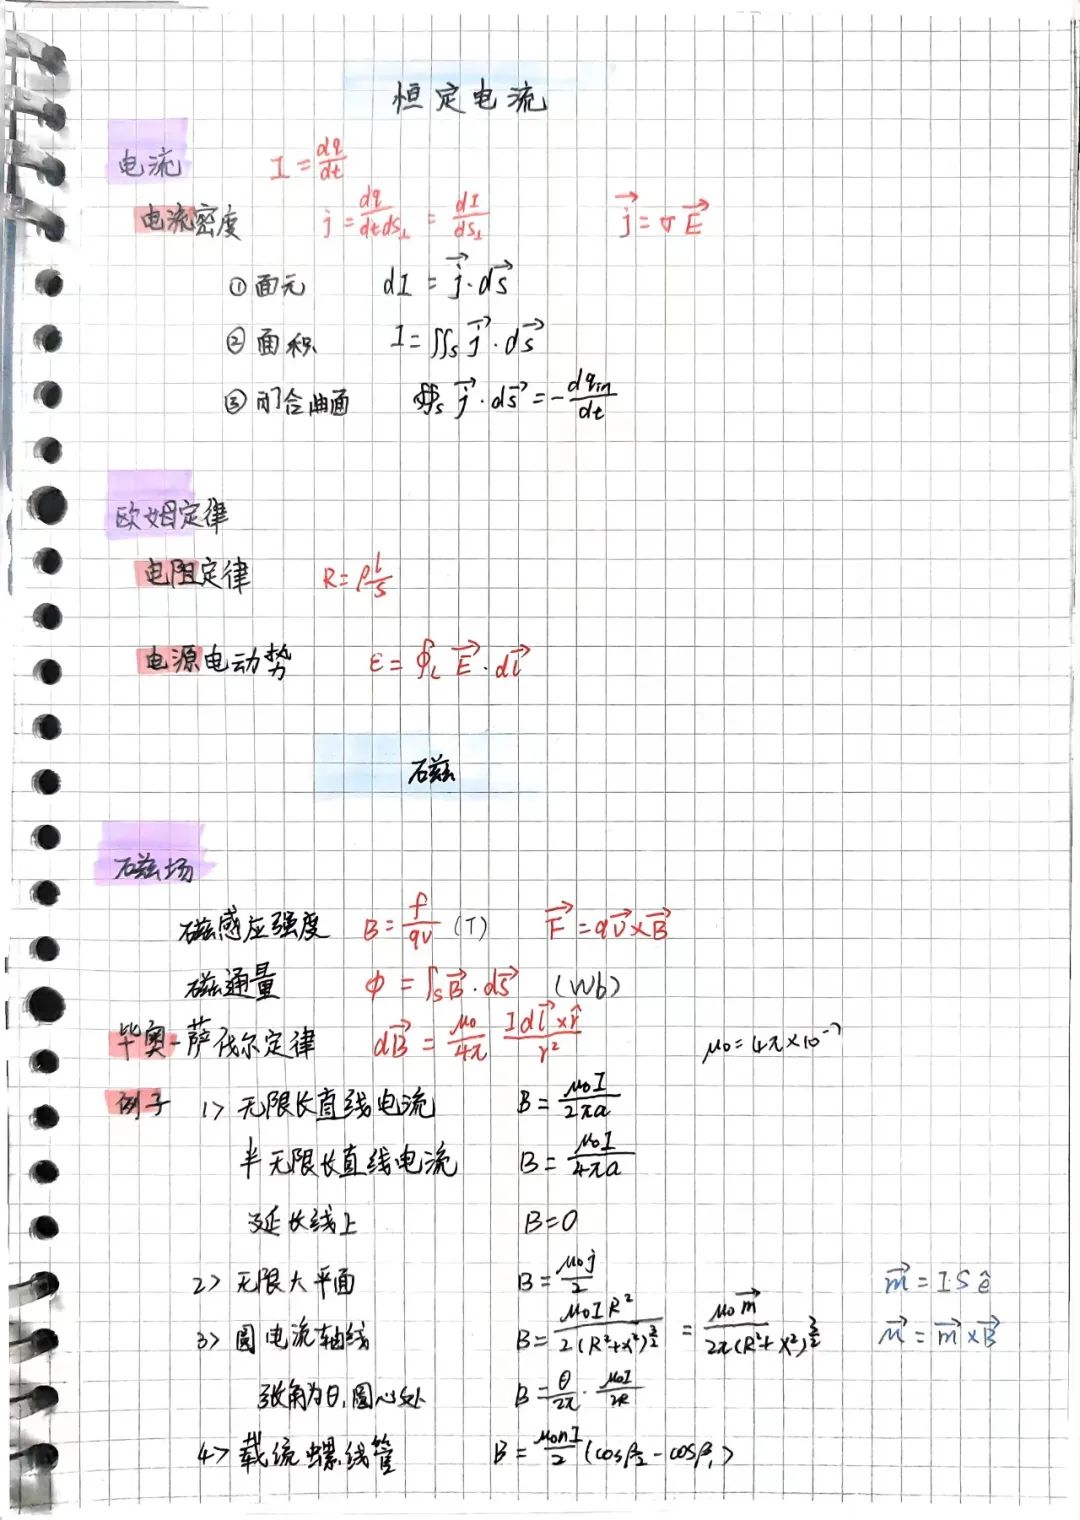 恒定电流
电流 I = dq/dt
电流密度 j = dq/(dtds⊥) = dI/ds⊥ j⃗ = σE⃗
① 面元 dI = j⃗·ds⃗
② 面积 I = ∬s j⃗·ds⃗
③ 闭合曲面 ∯s j⃗·ds⃗ = -dqin/dt
欧姆定律
电阻定律 R = ρ l/s
电源电动势 ε = ∮L E⃗·dl⃗
磁
磁场
磁感应强度 B = f/(qv) (T) F⃗ = qv⃗×B⃗
磁通量 Φ = ∫s B⃗·ds⃗ (Wb)
毕奥-萨伐尔定律 dB⃗ = μ0/4π Idl⃗×r̂/r² μ0 = 4π×10⁻⁷
例子 1> 无限长直线电流 B = μ0I/2πa
半无限长直线电流 B = μ0I/4πa
延长线上 B=0
2> 无限大平面 B = μ0j/2 m⃗ = I·S ê
3> 圆电流轴线 B = μ0IR²/2(R²+x²)^(3/2) = μ0m⃗/2π(R²+x²)^(3/2) M⃗ = m⃗×B⃗
张角为θ,圆心处 B = θ/2π · μ0I/2R
4> 载流螺线管 B = μ0nI/2 (cosβ2 - cosβ1)